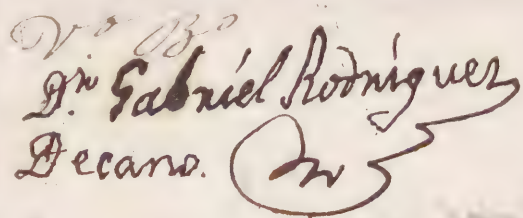 Vº Bº
Dn. Gabriel Rodriguez
Decano.